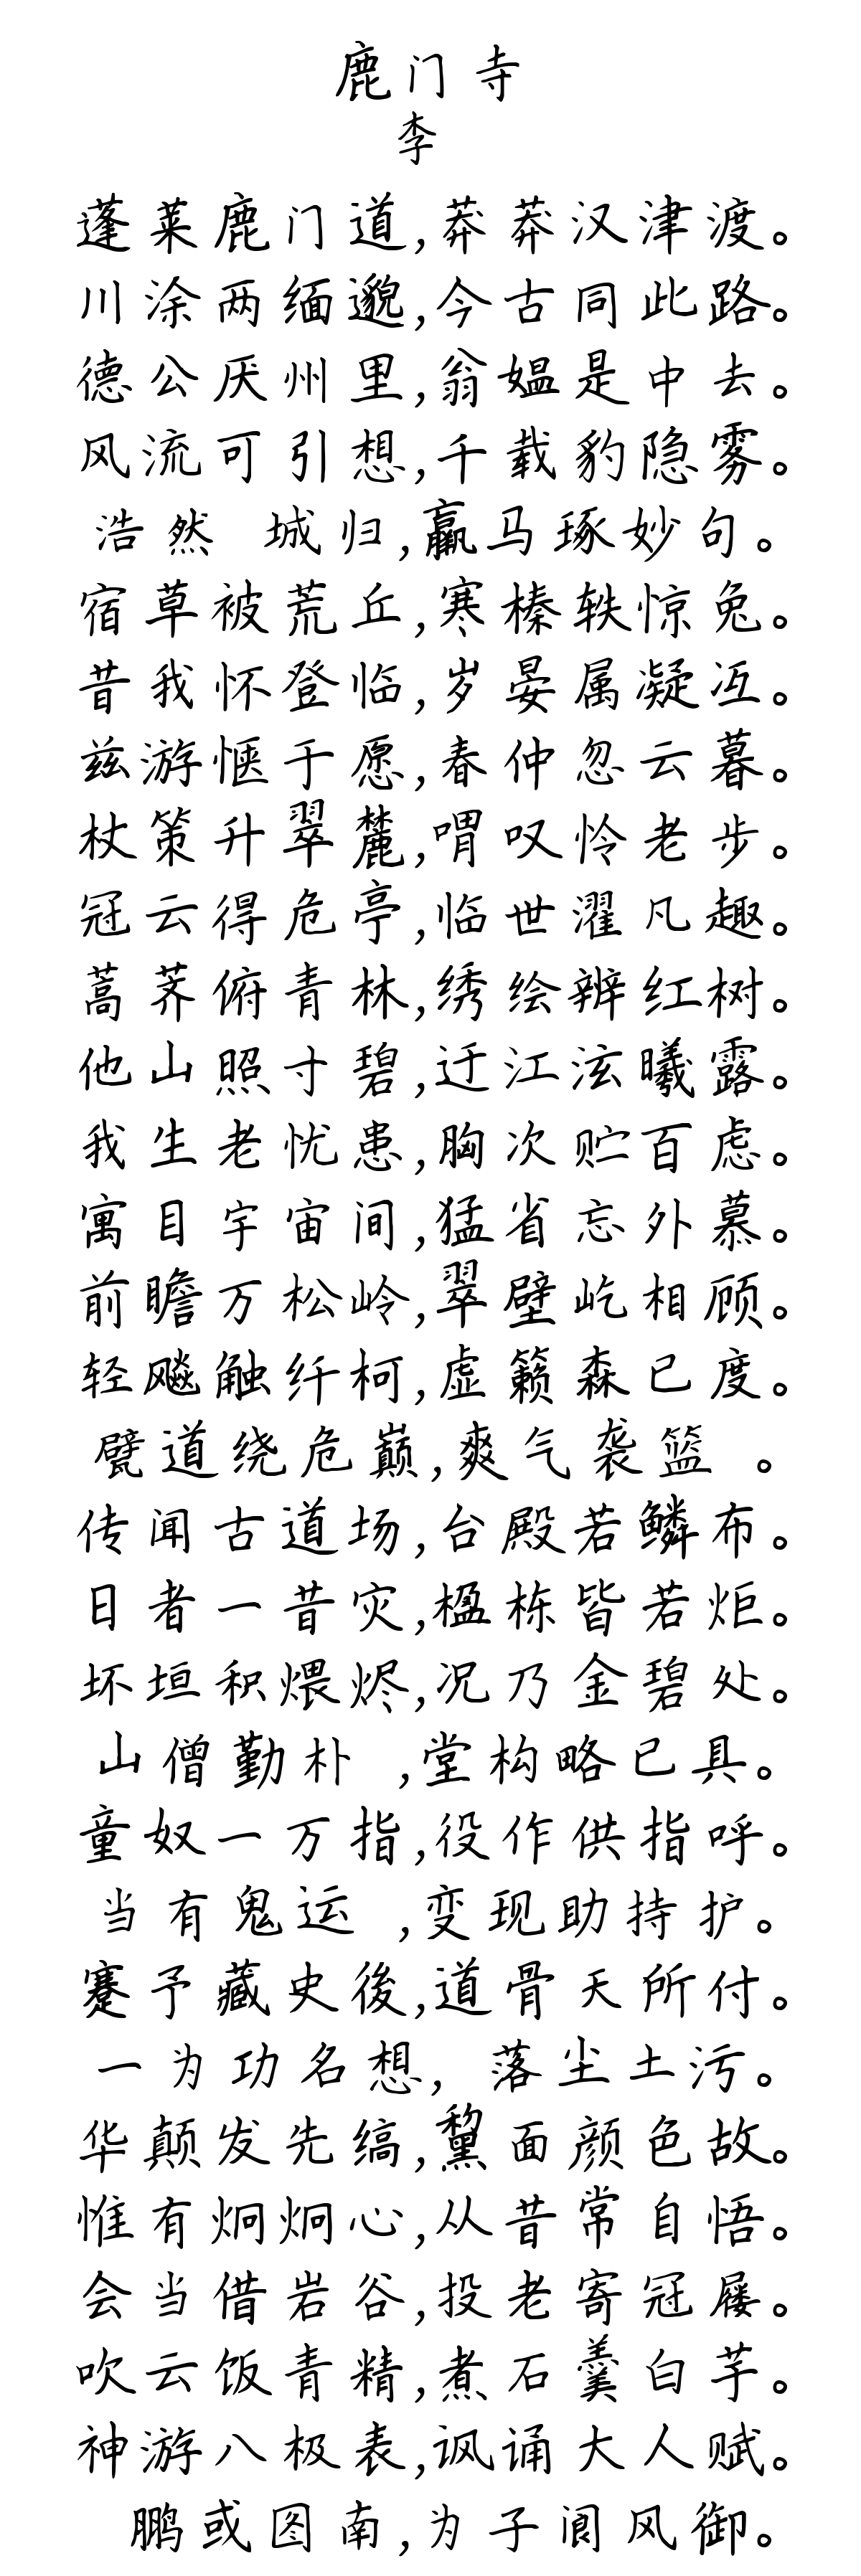 鹿门寺
李
蓬莱鹿门道,莽莽汉津渡。
川涂两缅邈,今古同此路。
德公厌州里,翁媪是中去。
风流可引想,千载豹隐雾。
浩然 城归,赢马琢妙句。
宿草被荒丘,寒榛轶惊兔。
昔我怀登临,岁晏属凝冱。
兹游惬于愿,春仲忽云暮。
杖策升翠麓,喟叹怜老步。
冠云得危亭,临世濯凡趣。
蒿荠俯青林,绣绘辨红树。
他山照寸碧,迂江泫曦露。
我生老忧患,胸次贮百虑。
寓目宇宙间,猛省忘外慕。
前瞻万松岭,翠壁屹相顾。
轻飚触纤柯,虚籁森已度。
甓道绕危巅,爽气袭篮 。
传闻古道场,台殿若鳞布。
日者一昔灾,楹栋皆若炬。
坏垣积煨烬,况乃金碧处。
山僧勤朴 ,堂构略已具。
童奴一万指,役作供指呼。
当有鬼运 ,变现助持护。
蹇予藏史後,道骨天所付。
一为功名想, 落尘土污。
华颠发先缟,黧面颜色故。
惟有炯炯心,从昔常自悟。
会当借岩谷,投老寄冠屦。
吹云饭青精,煮石羹白芋。
神游八极表,讽诵大人赋。
鹏或图南,为子阆风御。